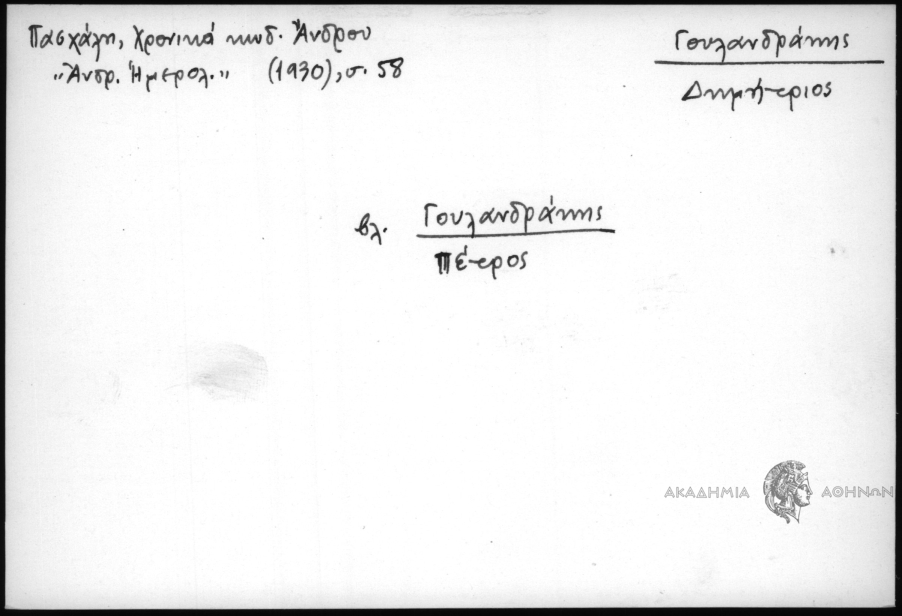 Πασχάλη, Χρονικά κωδ. Ἄνδρου
„Ἀνδρ. Ἡμερολ.” (1930), σ. 58
Γουλανδράκης
Δημήτριος
βλ. Γουλανδράκης
Πέτρος
ΑΚΑΔΗΜΙΑ ΑΘΗΝΩΝ